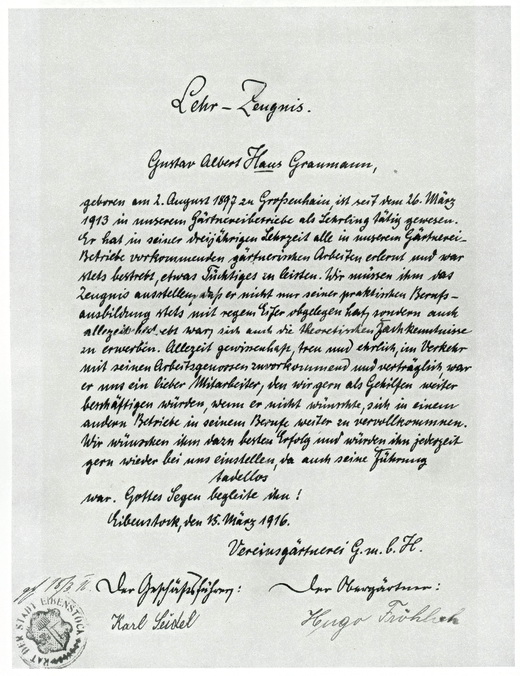 Lehr-Zeugnis.
Gustav Albert Hans Graumann,
geboren am 2. August 1897 zu Großenhain, ist seit dem 26. März
1913 in unserem Gärtnereibetriebe als Lehrling tätig gewesen.
Er hat in seiner dreijährigen Lehrzeit alle in unserem Gärtnerei-
Betriebe vorkommenden gärtnerischen Arbeiten erlernt und war
stets bestrebt, etwas Tüchtiges zu leisten. Wir müssen ihm das
Zeugnis ausstellen, daß er nicht nur seiner praktischen Berufs-
ausbildung stets mit regem Eifer obgelegen hat, sondern auch
allezeit bestrebt war, sich auch die theoretischen Fachkenntnisse
zu erwerben. Allezeit gewissenhaft, treu und ehrlich, im Verkehr
mit seinen Arbeitsgenossen zuvorkommend und verträglich, war
er uns ein lieber Mitarbeiter, den wir gern als Gehilfen weiter
beschäftigen würden, wenn er nicht wünschte, sich in einem
andern Betriebe in seinem Berufe weiter zu vervollkommnen.
Wir wünschen ihm dazu besten Erfolg und würden ihn jederzeit
gern wieder bei uns einstellen, da auch seine Führung
tadellos
war. Gottes Segen begleite den!
Eibenstock, den 15. März 1916.
Vereinsgärtnerei G.m.b.H.
Der Geschäftsführer: Der Obergärtner:
Karl Seidel Hugo Fröhlich
RAT DER STADT EIBENSTOCK